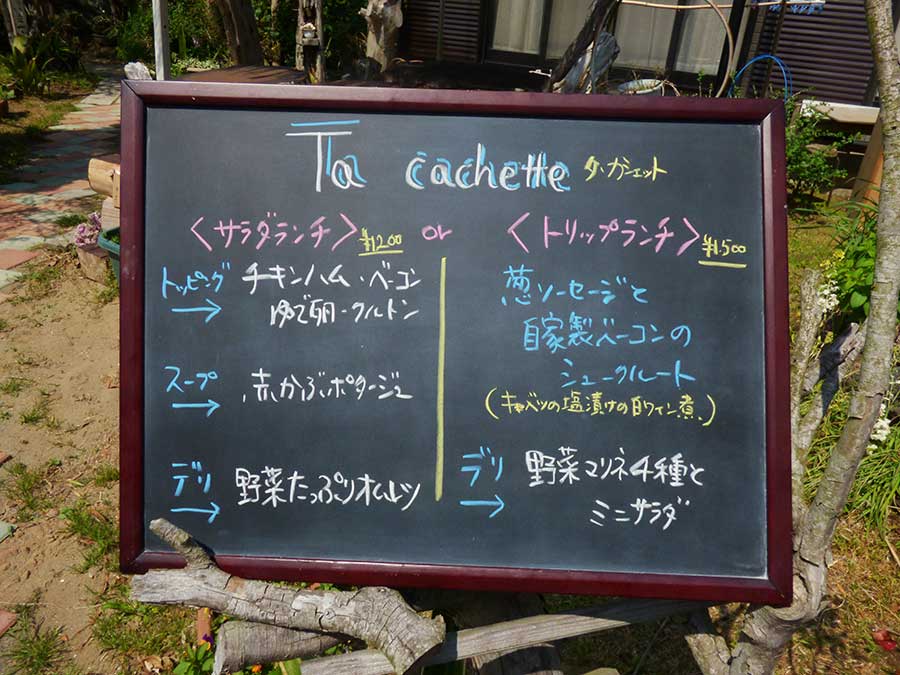 Ta cachette タ・カシェット
〈サラダランチ〉 ¥1200 or
トッピング → チキンハム・ベーコン
ゆで卵・クルトン
スープ → 赤かぶポタージュ
デリ → 野菜たっぷりオムレツ
〈トリップランチ〉 ¥1,500
葱ソーセージと
自家製ベーコンの
シュークルート
(キャベツの塩漬けの白ワイン煮)
デリ → 野菜マリネ4種と
ミニサラダ